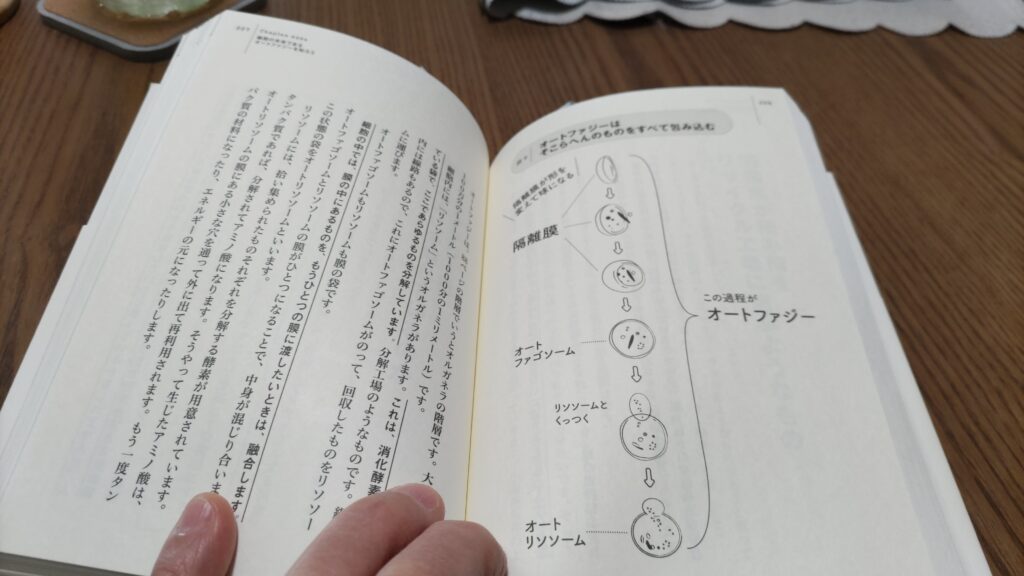 オートファジーは
そこらへんのものをすべて包み込む
隔離膜が形を
変えて球になる
隔離膜
オート
ファゴソーム
リソソームと
くっつく
オート
リソソーム
この過程が
オートファジー
227
ページの階層でいうとオルガネラの階層です。大
(1000分の1ミリメートル)です。
細胞内には、「リソソーム」というオルガネラがあります。これは、消化酵素
ている袋で、ここであらゆるものを分解しています。分解工場のようなものです。
内には線路もあるので、これにオートファゴソームがのって、回収したものをリソソー
ムに運びます。
オートファゴソームもリソソームも膜の袋です。
細胞の中では、膜の中にあるものを、もうひとつの膜に渡したいときは、融合します
オートファゴソームとリソソームの膜がひとつになることで、中身が混じり合いま
この状態の袋をオートリソソームといいます。
リソソームには、拾い集められたものそれぞれを分解する酵素が用意されています。
タンパク質であれば、分解されてアミノ酸になります。そうやって生じたアミノ酸は、
オートリソソームの膜にある小さな穴を通って外に出て再利用されます。もう一度タン
パク質の材料になったり、エネルギーの元になったりします。